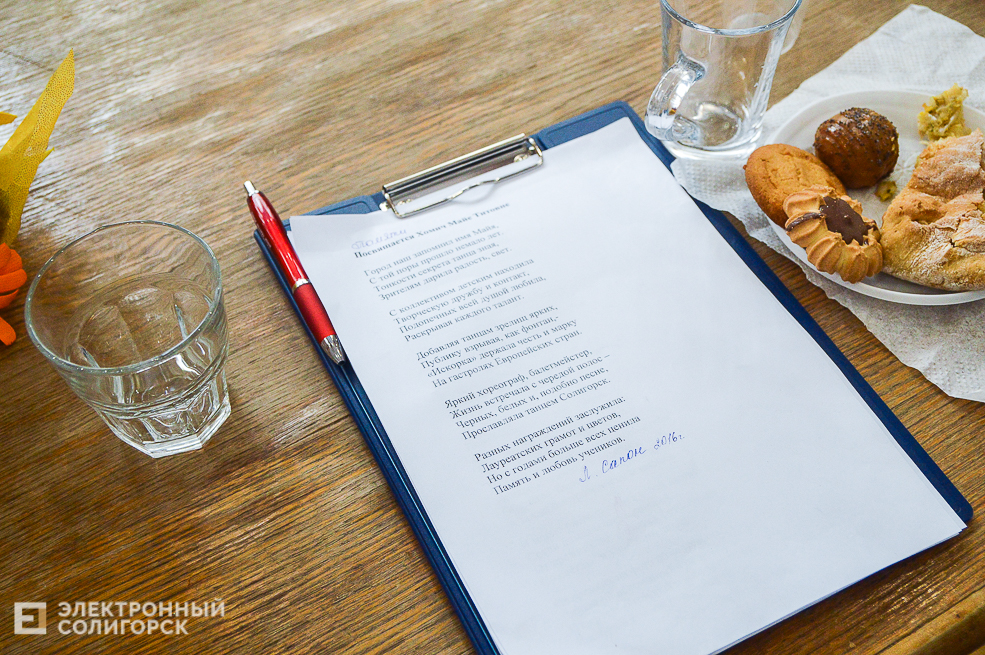 Посвящается Хомич Майе Титовне
Город наш запомнил имя Майя,
С той поры прошло немало лет.
Тонкости секрета танца зная,
Зрителям дарила радость, свет.
С коллективом детским находила
Творческую дружбу и контакт,
Подопечных всей душой любила,
Раскрывая каждого талант.
Добавляя танцам зрелищ ярких,
Публику взрывая, как фонтан,-
«Искорка» держала честь и марку
На гастролях Европейских стран.
Яркий хореограф, балетмейстер,
Жизнь встречала с чередой полос –
Черных, белых и, подобно песне,
Прославляла танцем Солигорск.
Разных награждений заслужила:
Лауреатских грамот и цветов,
Но с годами больше всех ценила
Память и любовь учеников.
Л. Сапон 2016 г
ЭЛЕКТРОННЫЙ
СОЛИГОРСК